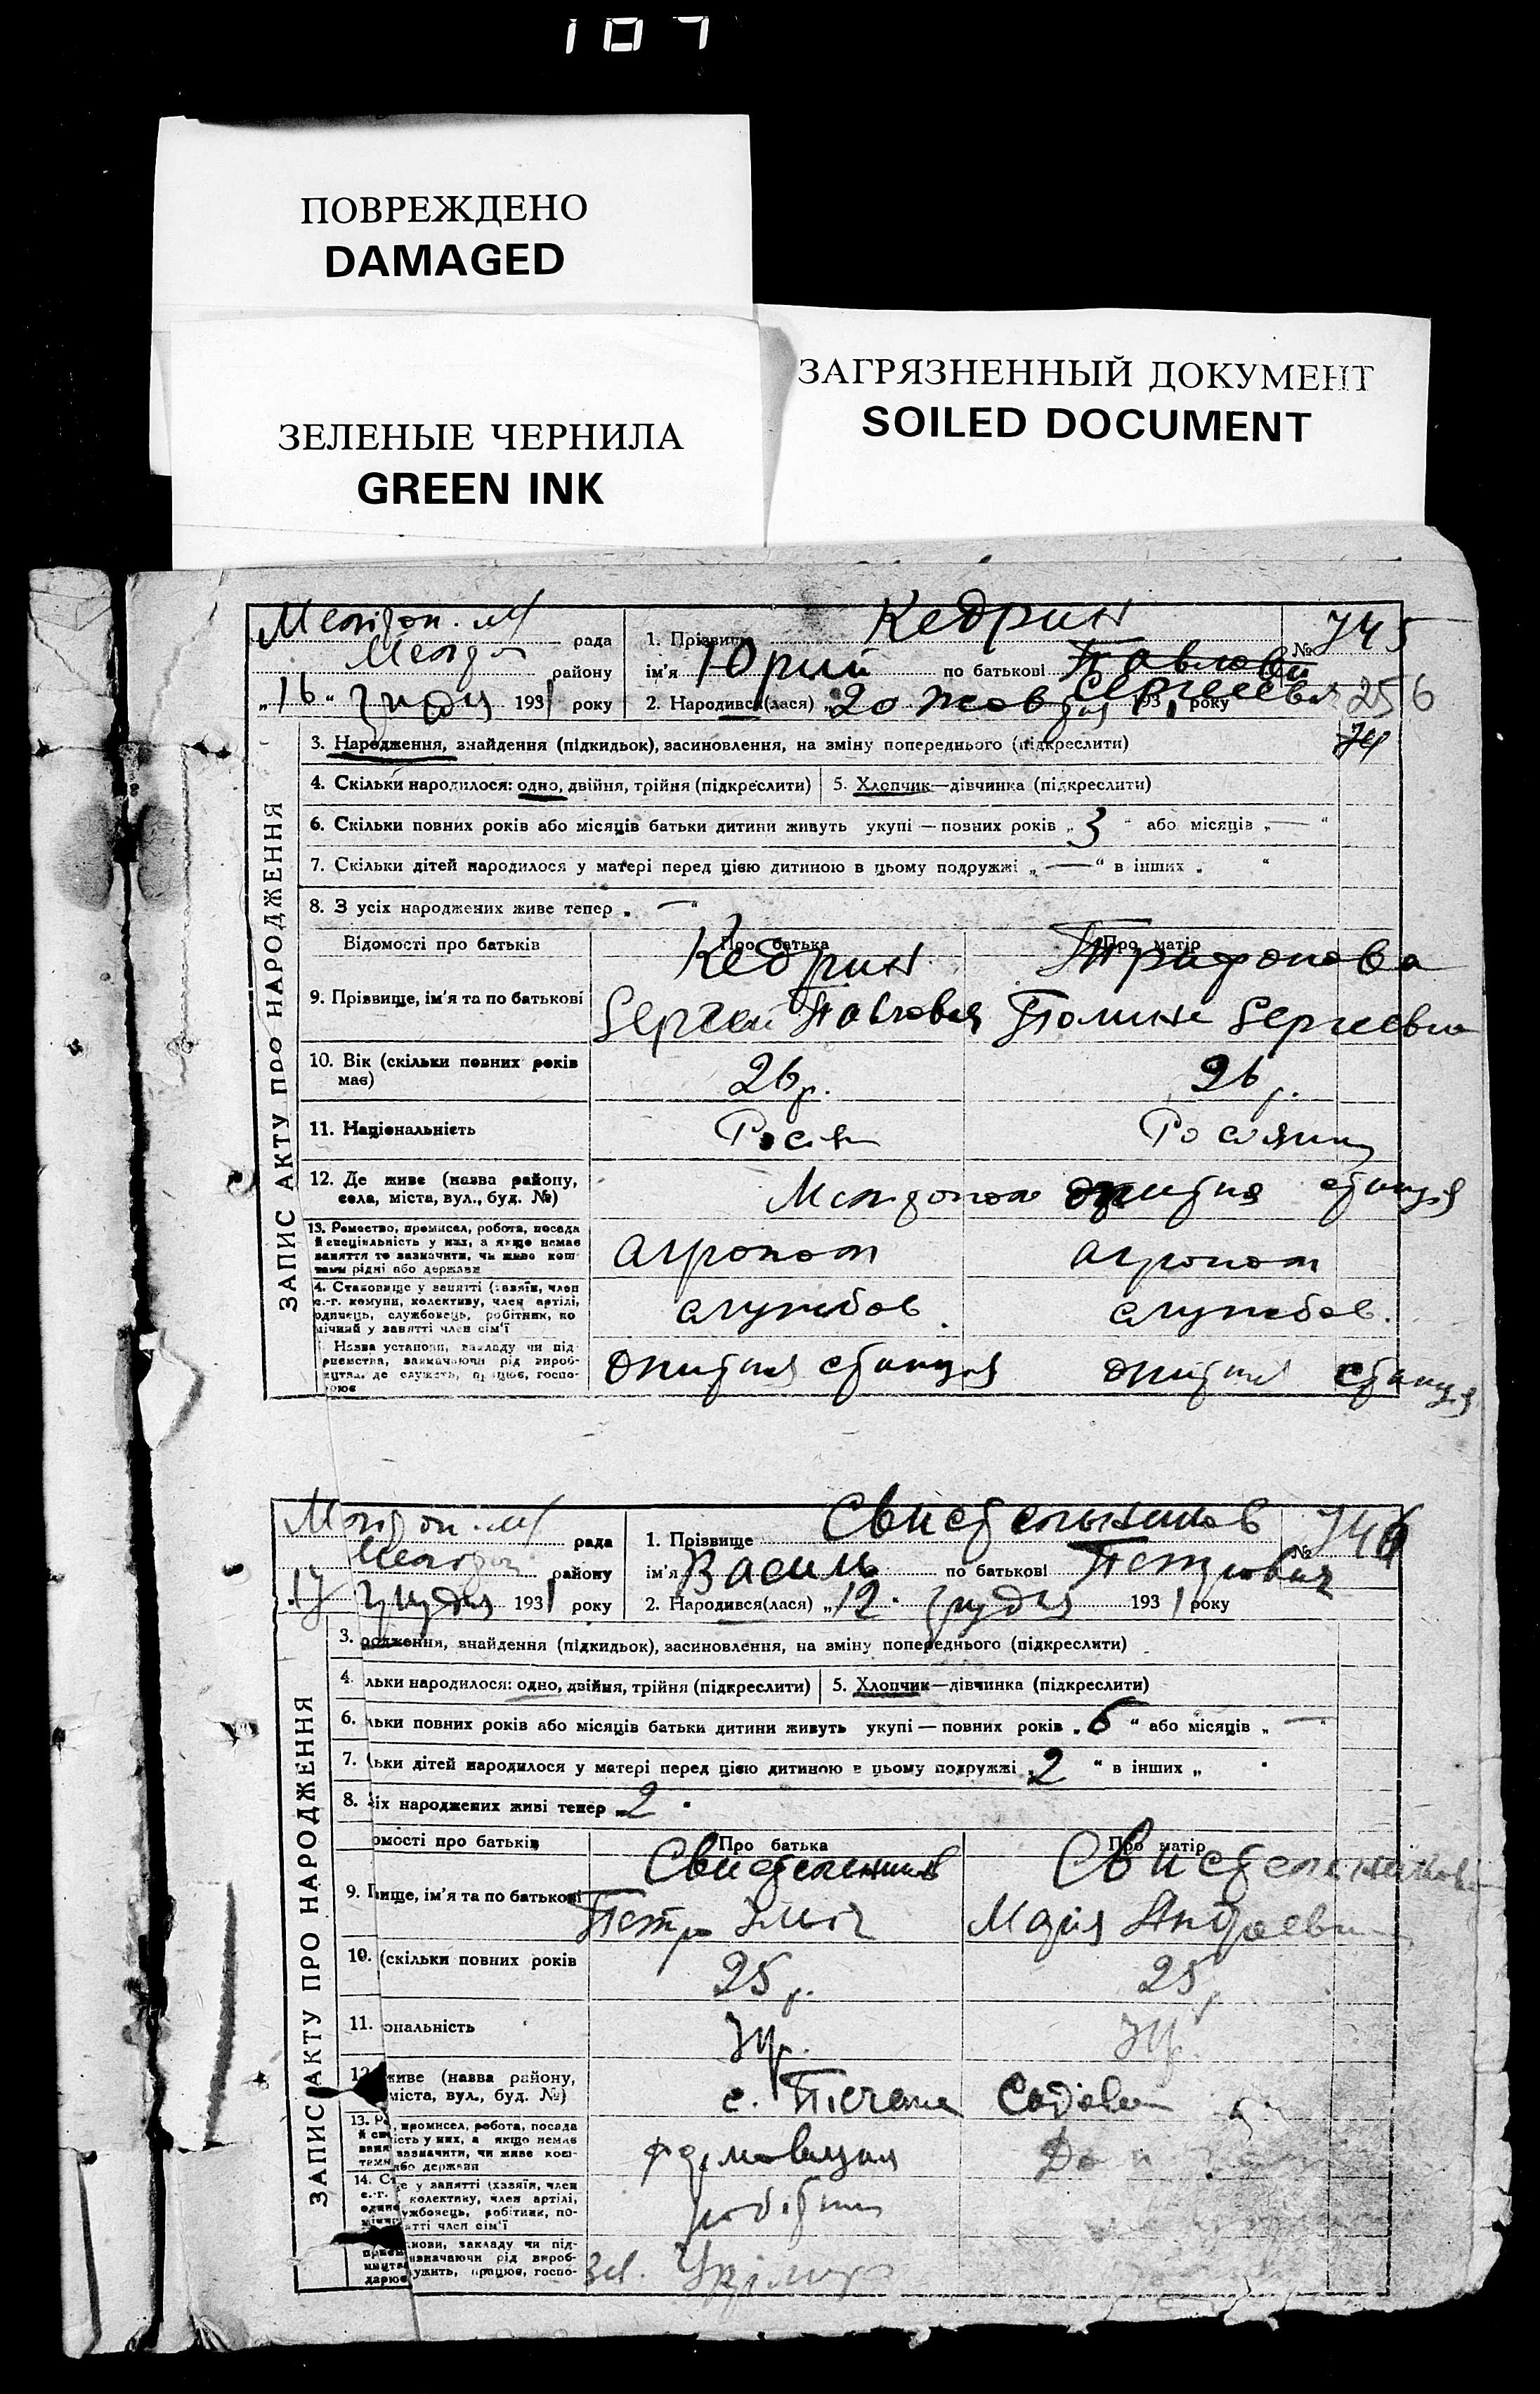 107
ПОВРЕЖДЕНО
DAMAGED
ЗЕЛЕНЫЕ ЧЕРНИЛА
GREEN INK
ЗАГРЯЗНЕННЫЙ ДОКУМЕНТ
SOILED DOCUMENT
ЗАПИС АКТУ ПРО НАРОДЖЕННЯ
рада
району
„16“ грудня 1931 року
1. Прізвище Кедрин № 745
ім'я Юрий по батькові Павлови Сергеевич
2. Народився(лася) „20 жовтня 1931 року
256
3. Народження, знайдення (підкидьок), засиновлення, на зміну попереднього (підкреслити)
4. Скільки народилося: одно, двійня, трійня (підкреслити) 5. Хлопчик—дівчинка (підкреслити)
6. Скільки повних років або місяців батьки дитини живуть укупі — повних років „3“ або місяців „—“
7. Скільки дітей народилося у матері перед цією дитиною в цьому подружжі „—“ в інших „ “
8. З усіх народжених живе тепер „—“
Відомості про батьків Про батька Про матір
Кедрин Трифонова
9. Прізвище, ім'я та по батькові Сергей Павлович Полина Сергеевна
10. Вік (скільки повних років має) 26 р. 26 р.
11. Національність Росіян Росіянка
12. Де живе (назва району, села, міста, вул., буд. №) Мелітополь опитна станція
13. Ремество, промисел, робота, посада й спеціяльність у них, а якщо немає заняття то зазначити, чи живе коштами рідні або держави
агроном агроном
4. Становище у занятті (хазяїн, член с.-г. комуни, колективу, член артілі, одинець, службовець, робітник, помічний у занятті член сім'ї
службов. службов.
Назва установи, закладу чи підприємства, зазначаючи рід виробництва, де служить, працює, господарює
опитна станція опитна станція
ЗАПИС АКТУ ПРО НАРОДЖЕННЯ
рада
району
„17 грудня 1931 року
1. Прізвище Свистельников № 746
ім'я Василь по батькові Петрович
2. Народився(лася) „12“ грудня 1931 року
3. родження, знайдення (підкидьок), засиновлення, на зміну попереднього (підкреслити)
4. льки народилося: одно, двійня, трійня (підкреслити) 5. Хлопчик—дівчинка (підкреслити)
6. льки повних років або місяців батьки дитини живуть укупі — повних років „6“ або місяців „—“
7. льки дітей народилося у матері перед цією дитиною в цьому подружжі „2“ в інших „ “
8. іх народжених живі тепер „2“
омості про батьків Про батька Про матір
Свистельников Свистельникова
9. вище, ім'я та по батькові Петро Марія Андреевна
10. (скільки повних років 25 р. 25 р.
11. ональність Укр. Укр.
12. живе (назва району, міста, вул., буд. №)
13. промисел, робота, посада
ість у них, а якщо немає
зазначити, чи живе кош-
або держави
14. Ст е у занятті (хазяїн, член
с.-г. колективу, член артілі,
ужбовець, робітник, по-
ятті член сім'ї
робітник
нови, закладу чи під-
зазначаючи рід вироб-
ужить, працює, госпо-
дарює